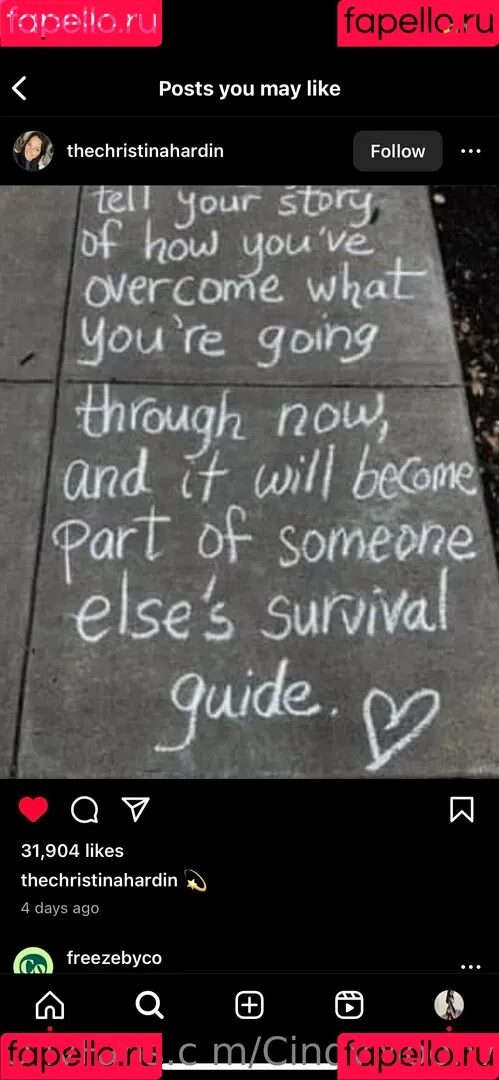 fapello.ru fapello.ru
Posts you may like
thechristinahardin Follow
tell your story
of how you've
overcome what
you're going
through now,
and it will become
part of someone
else's survival
guide.
31,904 likes
thechristinahardin
4 days ago
freezebyco
Co
fapello.ru fapello.ru